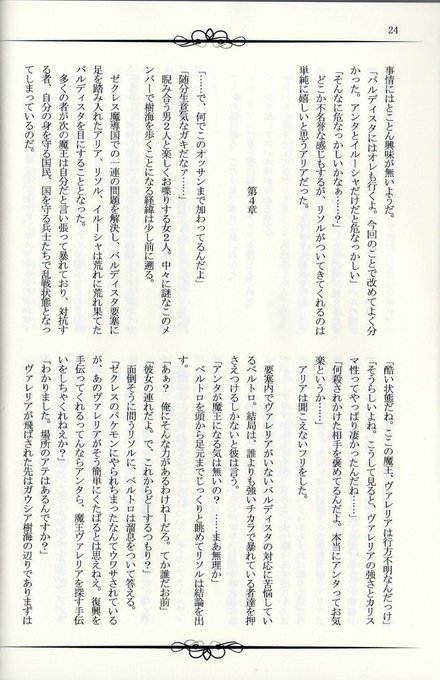 24
事情にはとことん興味が無いようだ。
「バルディスタにはオレも行くよ。今回のことで改めてよく分
かった。アンタとイルーシャだけだと危なっかしい」
「そんなに危なっかしいかなぁ……?」
どこか不名誉な感じもするが、リソルがついてきてくれるのは
単純に嬉しいと思うアリアだった。
第4章
「……で、何でこのオッサンまで加わってるんだよ」
「随分生意気なガキだなァ?……」
睨み合う男2人と楽しくお喋りする女2人。中々に謎なこのメ
ンバーで樹海を歩くことになる経緯は少し前に遡る。
ゼクレス魔導国での一連の問題を解決し、バルディスタ要塞に
足を踏み入れたアリア、リソル、イルーシャは荒れに荒れ果てた
バルディスタを目にすることとなった。
多くの者が次の魔王は自分だと言い張って暴れており、対抗す
る者、自分の身を守る国民、国を守る兵士たちで乱戦状態となっ
てしまっているのだ。
「酷い状態だね。ここの魔王、ヴァレリアは行方不明なんだっけ」
「そうらしいよね。こうして見ると、ヴァレリアの強さとカリス
マ性ってやっぱり凄かったんだね……」
「何殺されかけた相手を褒めてるんだよ。本当にアンタってお気
楽というか……」
アリアは聞こえないフリをした。
要塞内でヴァレリアがいないバルディスタの対応に苦悩してい
るベルトロ。結局は、誰よりも強いチカラで暴れている者達を押
さえつけるしかないと彼は言う。
「アンタが魔王になる気は無いの?……まあ無理か」
ベルトロを頭から足元までじっくりと眺めてリソルは結論を出
す。
「あぁ? 俺にそんな力があるわけねーだろ。てか誰だお前」
「彼女の連れだよ。で、これからどーするつもり?」
面倒そうに問うリソルに、ベルトロは溜息をついて答える。
「ゼクレスのバケモンにやられちまったなんてウワサされている
が、あのヴァレリアがそう簡単にくたばるとは思えねえ。復興を
手伝ってくれるってんならアンタら、魔王ヴァレリアを探す手伝
いをしちゃくれねえか?」
「わかりました。場所のアテはあるんですか?」
ヴァレリアが飛ばされた先はガウシア樹海の辺りでありまずは